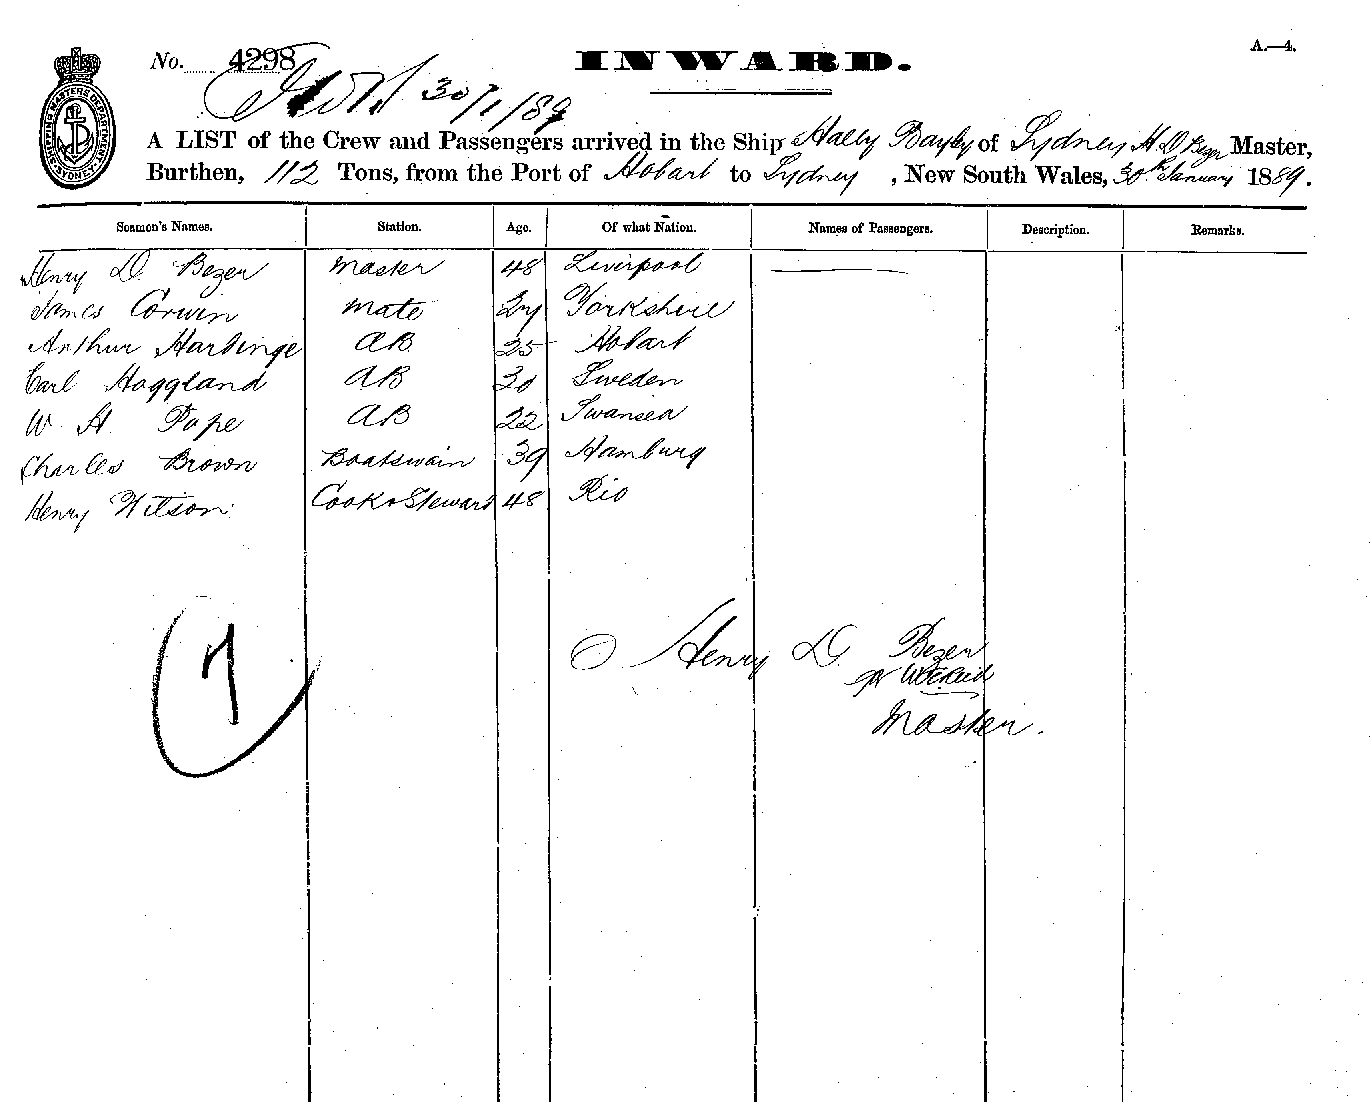 A.—4.
No. 4298
INWARD.
30/1/89
SHIPPING MASTERS DEPARTMENT SYDNEY
A LIST of the Crew and Passengers arrived in the Ship Hally Bayly of Sydney H D Bezer Master,
Burthen, 112 Tons, from the Port of Hobart to Sydney , New South Wales, 30th January 1889.
Seamen's Names. Station. Age. Of what Nation. Names of Passengers. Description. Remarks.
Henry D. Bezer Master 48 Liverpool
James Corwin Mate 27 Yorkshire
Arthur Harbinge AB 25 Hobart
Carl Hoggland AB 30 Sweden
W. H. Pope AB 22 Swansea
Charles Brown Boatswain 39 Hamburg
Henry Wilson Cook & Steward 48 Rio
7
Henry D. Bezer
pr
Master.